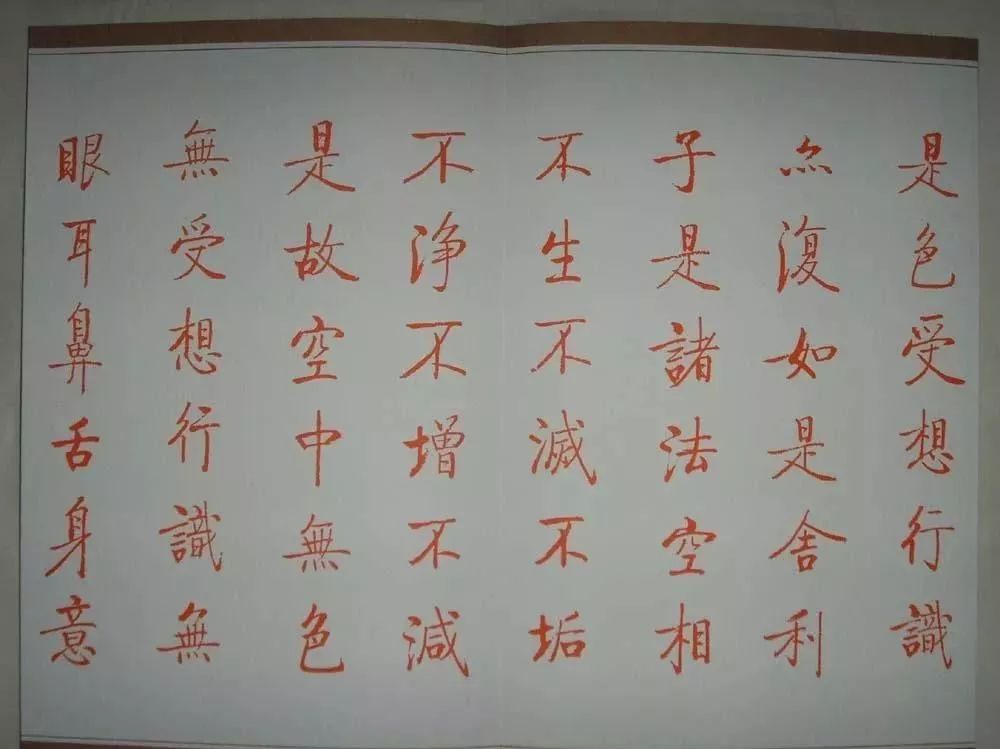 是色受想行識
亦復如是舍利
子是諸法空相
不生不滅不垢
不浄不增不減
是故空中無色
無受想行識無
眼耳鼻舌身意